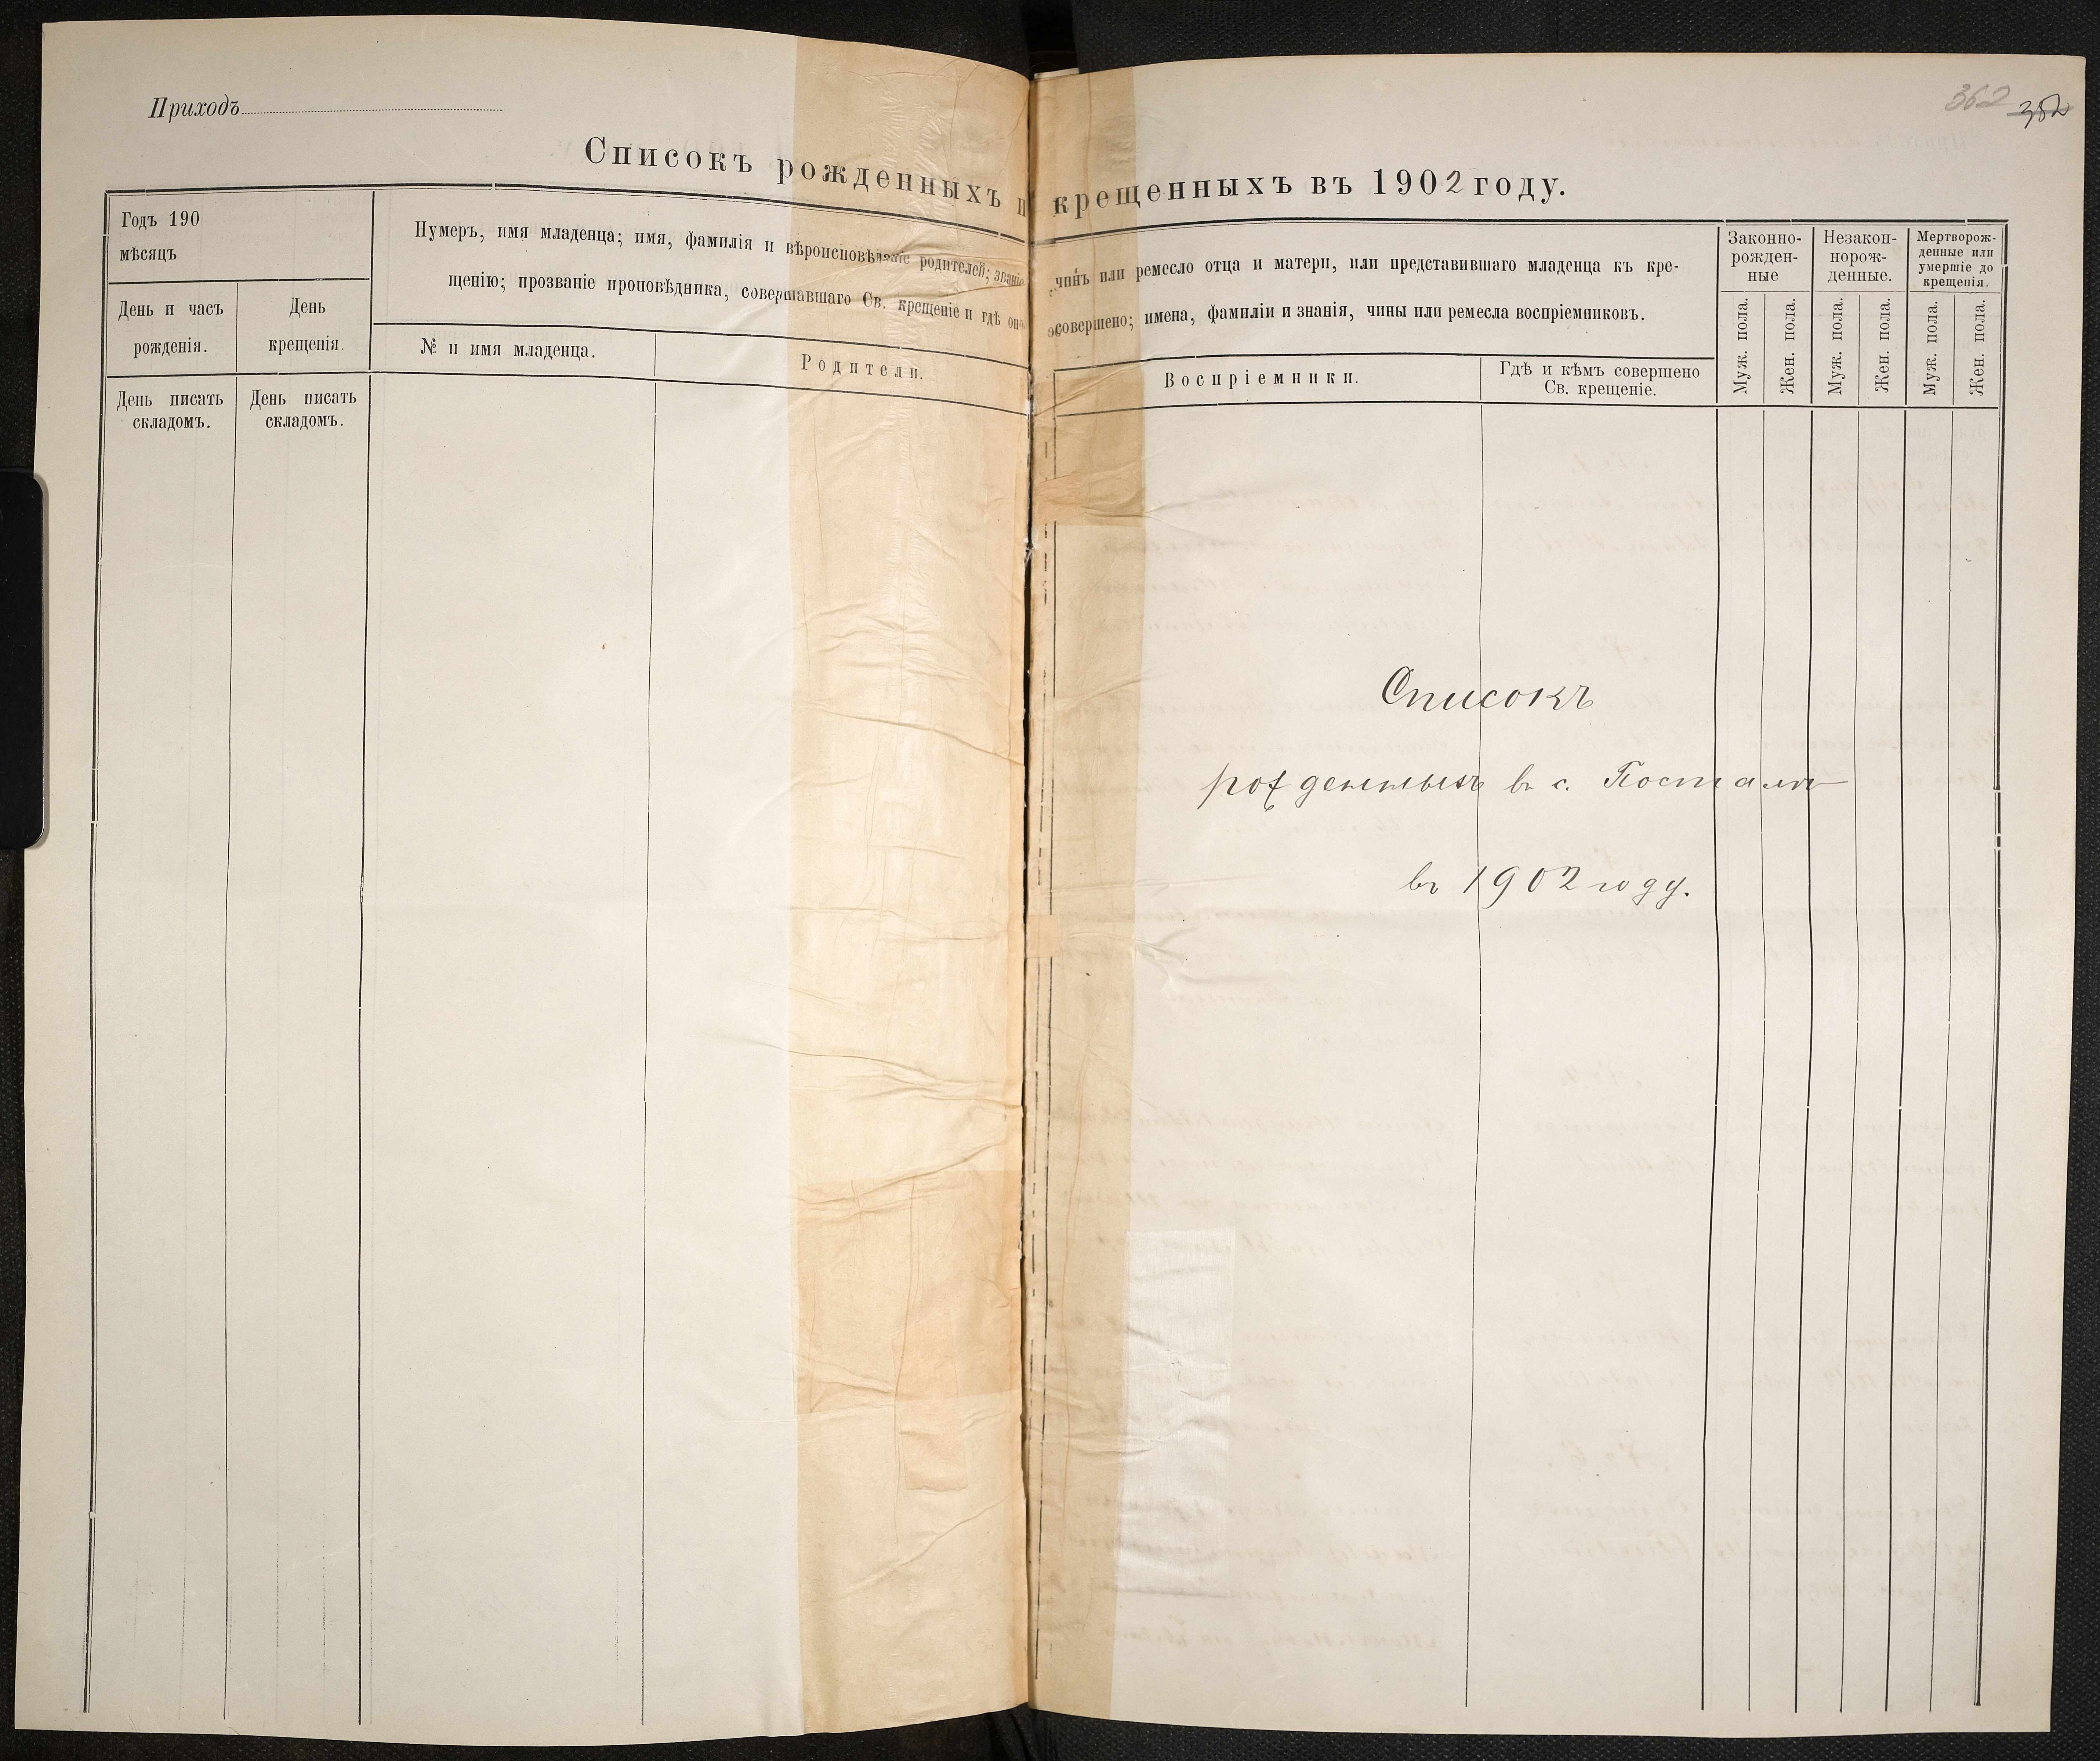 Приходъ
362 352
Списокъ рожденныхъ и крещенныхъ въ 1902 году.
Годъ 190
мѣсяцъ
День и часъ рожденія.
День крещенія.
Нумеръ, имя младенца; имя, фамилія и вѣроисповѣданіе родителей; званіе, чинъ или ремесло отца и матери, или представившаго младенца къ кре-
щенію; прозваніе проповѣдника, совершавшаго Св. крещеніе и гдѣ оно совершено; имена, фамиліи и знанія, чины или ремесла воспріемниковъ.
№ и имя младенца.
Родители.
Воспріемники.
Гдѣ и кѣмъ совершено
Св. крещеніе.
Законно-
рожден-
ные
Незакон-
норож-
денные.
Мертворож-
денные или
умершіе до
крещенія.
Муж. пола.
Жен. пола.
Муж. пола.
Жен. пола.
Муж. пола.
Жен. пола.
День писать
складомъ.
День писать
складомъ.
Списокъ
рожденныхъ въ с. Посталѣ
въ 1902 году.